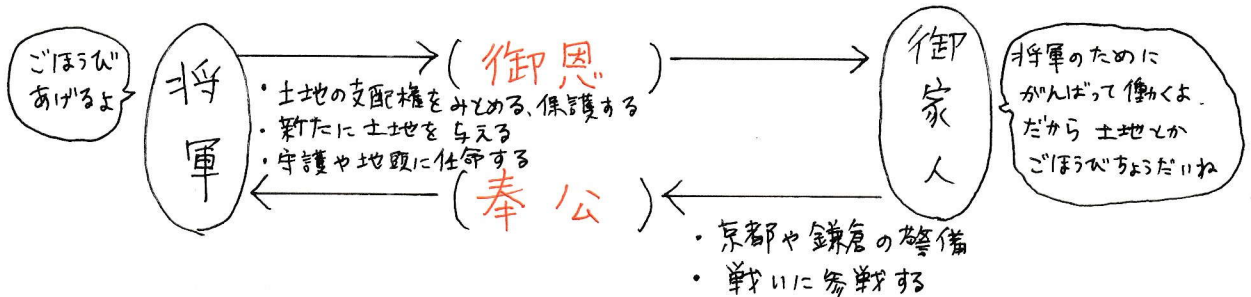 ごほうび
あげるよ
将軍
(御恩)
・土地の支配権をみとめる、保護する
・新たに土地を与える
・守護や地頭に任命する
(奉公)
・京都や鎌倉の警備
・戦いに参戦する
御家人
将軍のために
がんばって働くよ.
だから土地とか
ごほうびちょうだいね